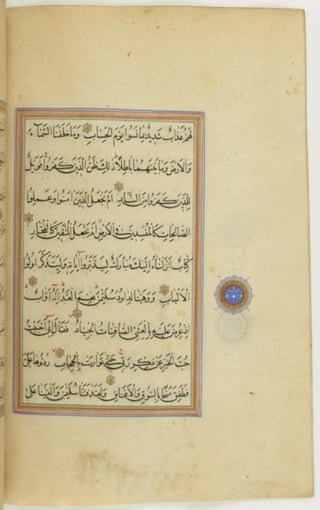 لهم عذاب شديد بما نسوا يوم الحساب وما خلقنا السماء
والارض وما بينهما باطلا ذلك ظن الذين كفروا فويل
للذين كفروا من النار ام نجعل الذين امنوا وعملوا
الصالحات كالمفسدين في الارض ام نجعل المتقين كالفجار
كتاب انزلناه اليك مبارك ليدبروا اياته وليتذكر اولوا
الالباب ووهبنا لداود سليمن نعم العبد انه اواب
اذ عرض عليه بالعشي الصافنات الجياد فقال اني احببت
حب الخير عن ذكر ربي حتى توارت بالحجاب ردوها علي
فطفق مسحا بالسوق والاعناق ولقد فتنا سليمن والقينا على